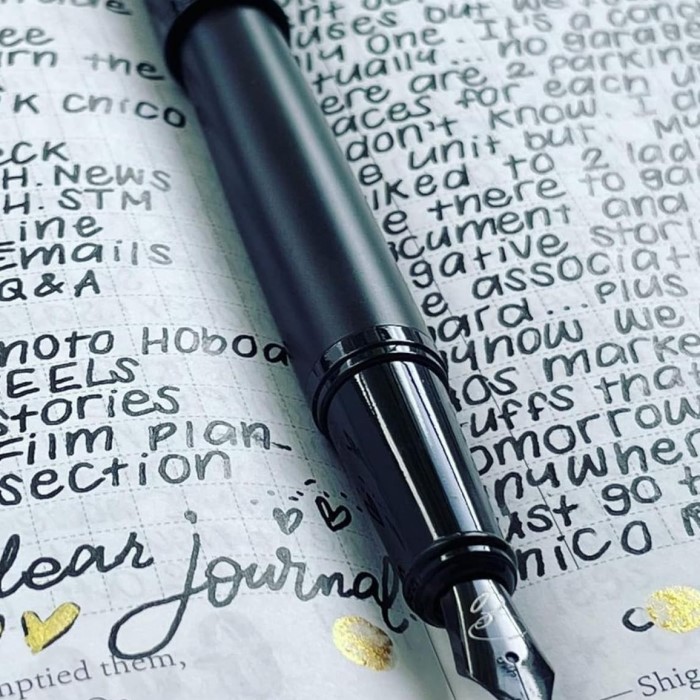 ee
rn the
K cnico
CK
H. News
H. STM
ine
Emails
Q & A
moto Hoboa
EELS
stories
Film Plan-
section
dear journal
mptied them,
nt
uses but we
lly one. It's a cons
tually... no garag
ere are 2 parkin
aces for each u
don't know. I d
e unit but My
iked to 2 lad
e there to ga
cument and
gative stor
e associat
ard... plus
ynow we
os marke
uffs that
omorrow
nywher
ust go t
nico
Shig